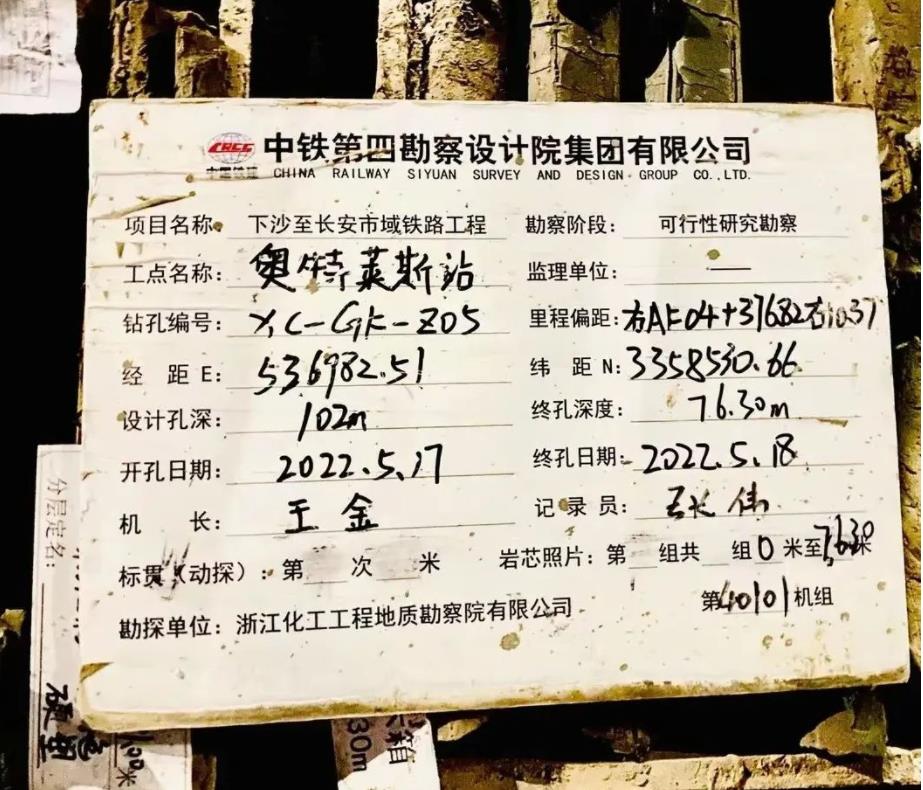 中铁第四勘察设计院集团有限公司
CRCC
中国铁建 CHINA RAILWAY SIYUAN SURVEY AND DESIGN GROUP CO.,LTD.
项目名称: 下沙至长安市域铁路工程 勘察阶段: 可行性研究勘察
工点名称: 奥特莱斯站 监理单位: —
钻孔编号: XC-GK-Z05 里程偏距: 右AK04+376.82右10.37
经 距 E: 536982.51 纬 距 N: 3358530.66
设计孔深: 102m 终孔深度: 76.30m
开孔日期: 2022.5.17 终孔日期: 2022.5.18
机 长: 王金 记录员: 伟
标贯(动探): 第 次 米 岩芯照片: 第 组共 组 0 米至 76.30 米
勘探单位: 浙江化工工程地质勘察院有限公司 第40101机组
分层定名:
硬塑
米
箱
30m